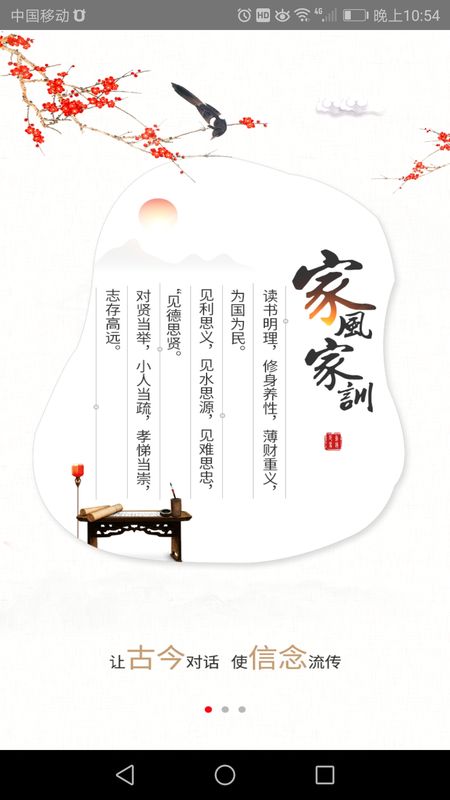 中国移动
HD
4G
晚上10:54
家風家訓
读书明理，修身养性，薄财重义，
为国为民。
见利思义，见水思源，见难思忠，
“见德思贤。
对贤当举，小人当疏，孝悌当崇，
志存高远。
让古今对话 使信念流传